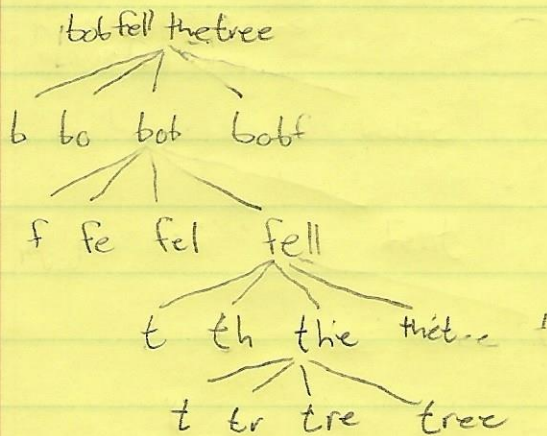 bobfell thetree
b bo bob bobf
f fe fel fell
t th the thet...e
t tr tre tree